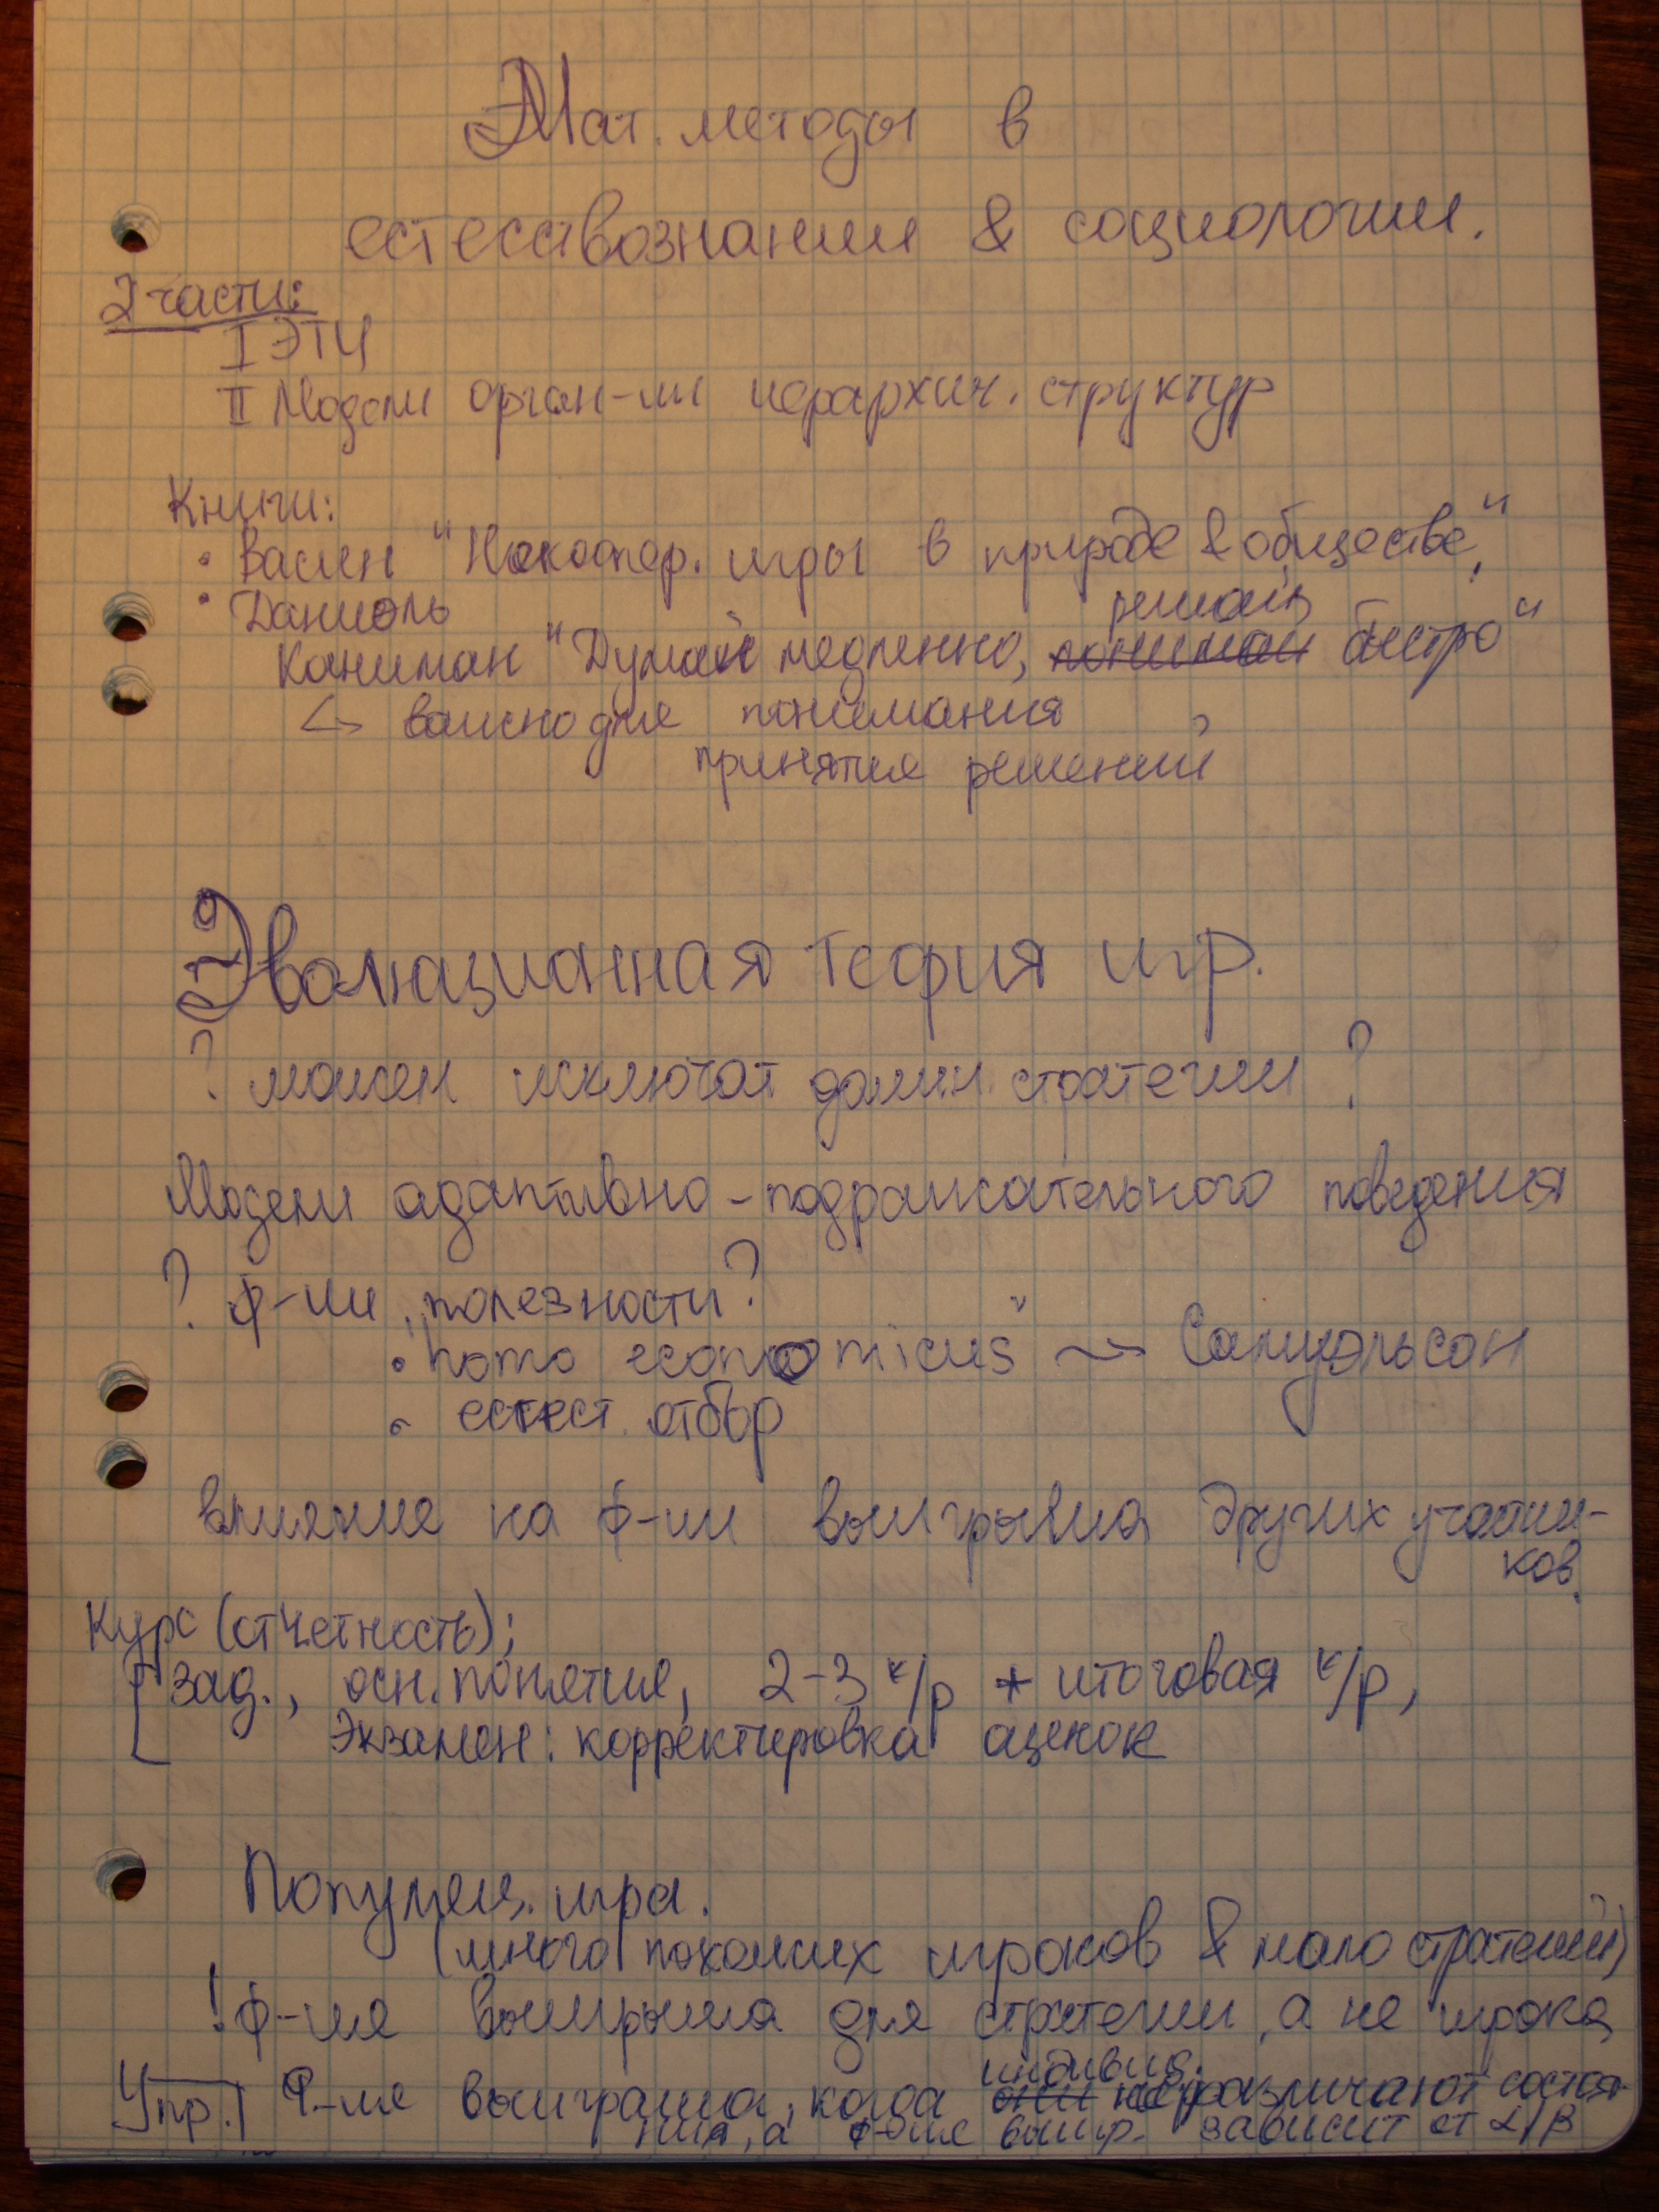 Мат. методы в
естесствознании & социологии.
2 части:
I ЭТИ
II Модели орган-ии иерархич. структур
Книги:
• Васин "Некоопер. игры в природе & обществе",
• Даниэль
решай
Каниман "Думай медленно, понимай быстро"
↳ важно для понимания
принятия решений
Эволюционная теория игр.
? можем исключат домин. стратегии ?
Модели адаптивно-подражательного поведения
? ф-ии полезности?
• "homo economicus" → Самуэльсон
• естест. отбор
влияние на ф-ии выигрыша других участни-
ков.
Курс (отчетность):
зад., осн. понятия, 2-3 к/р + итоговая к/р,
Экзамен: корректировка оценок
Популяц. игра.
(много похожих игроков & мало стратегий)
! ф-ия выигрыша для стратегии, а не игрока
индивид.
Упр. Ф-ия выиграша, когда они не различают состоя-
ния, а ф-ия выигр. зависит от α/β